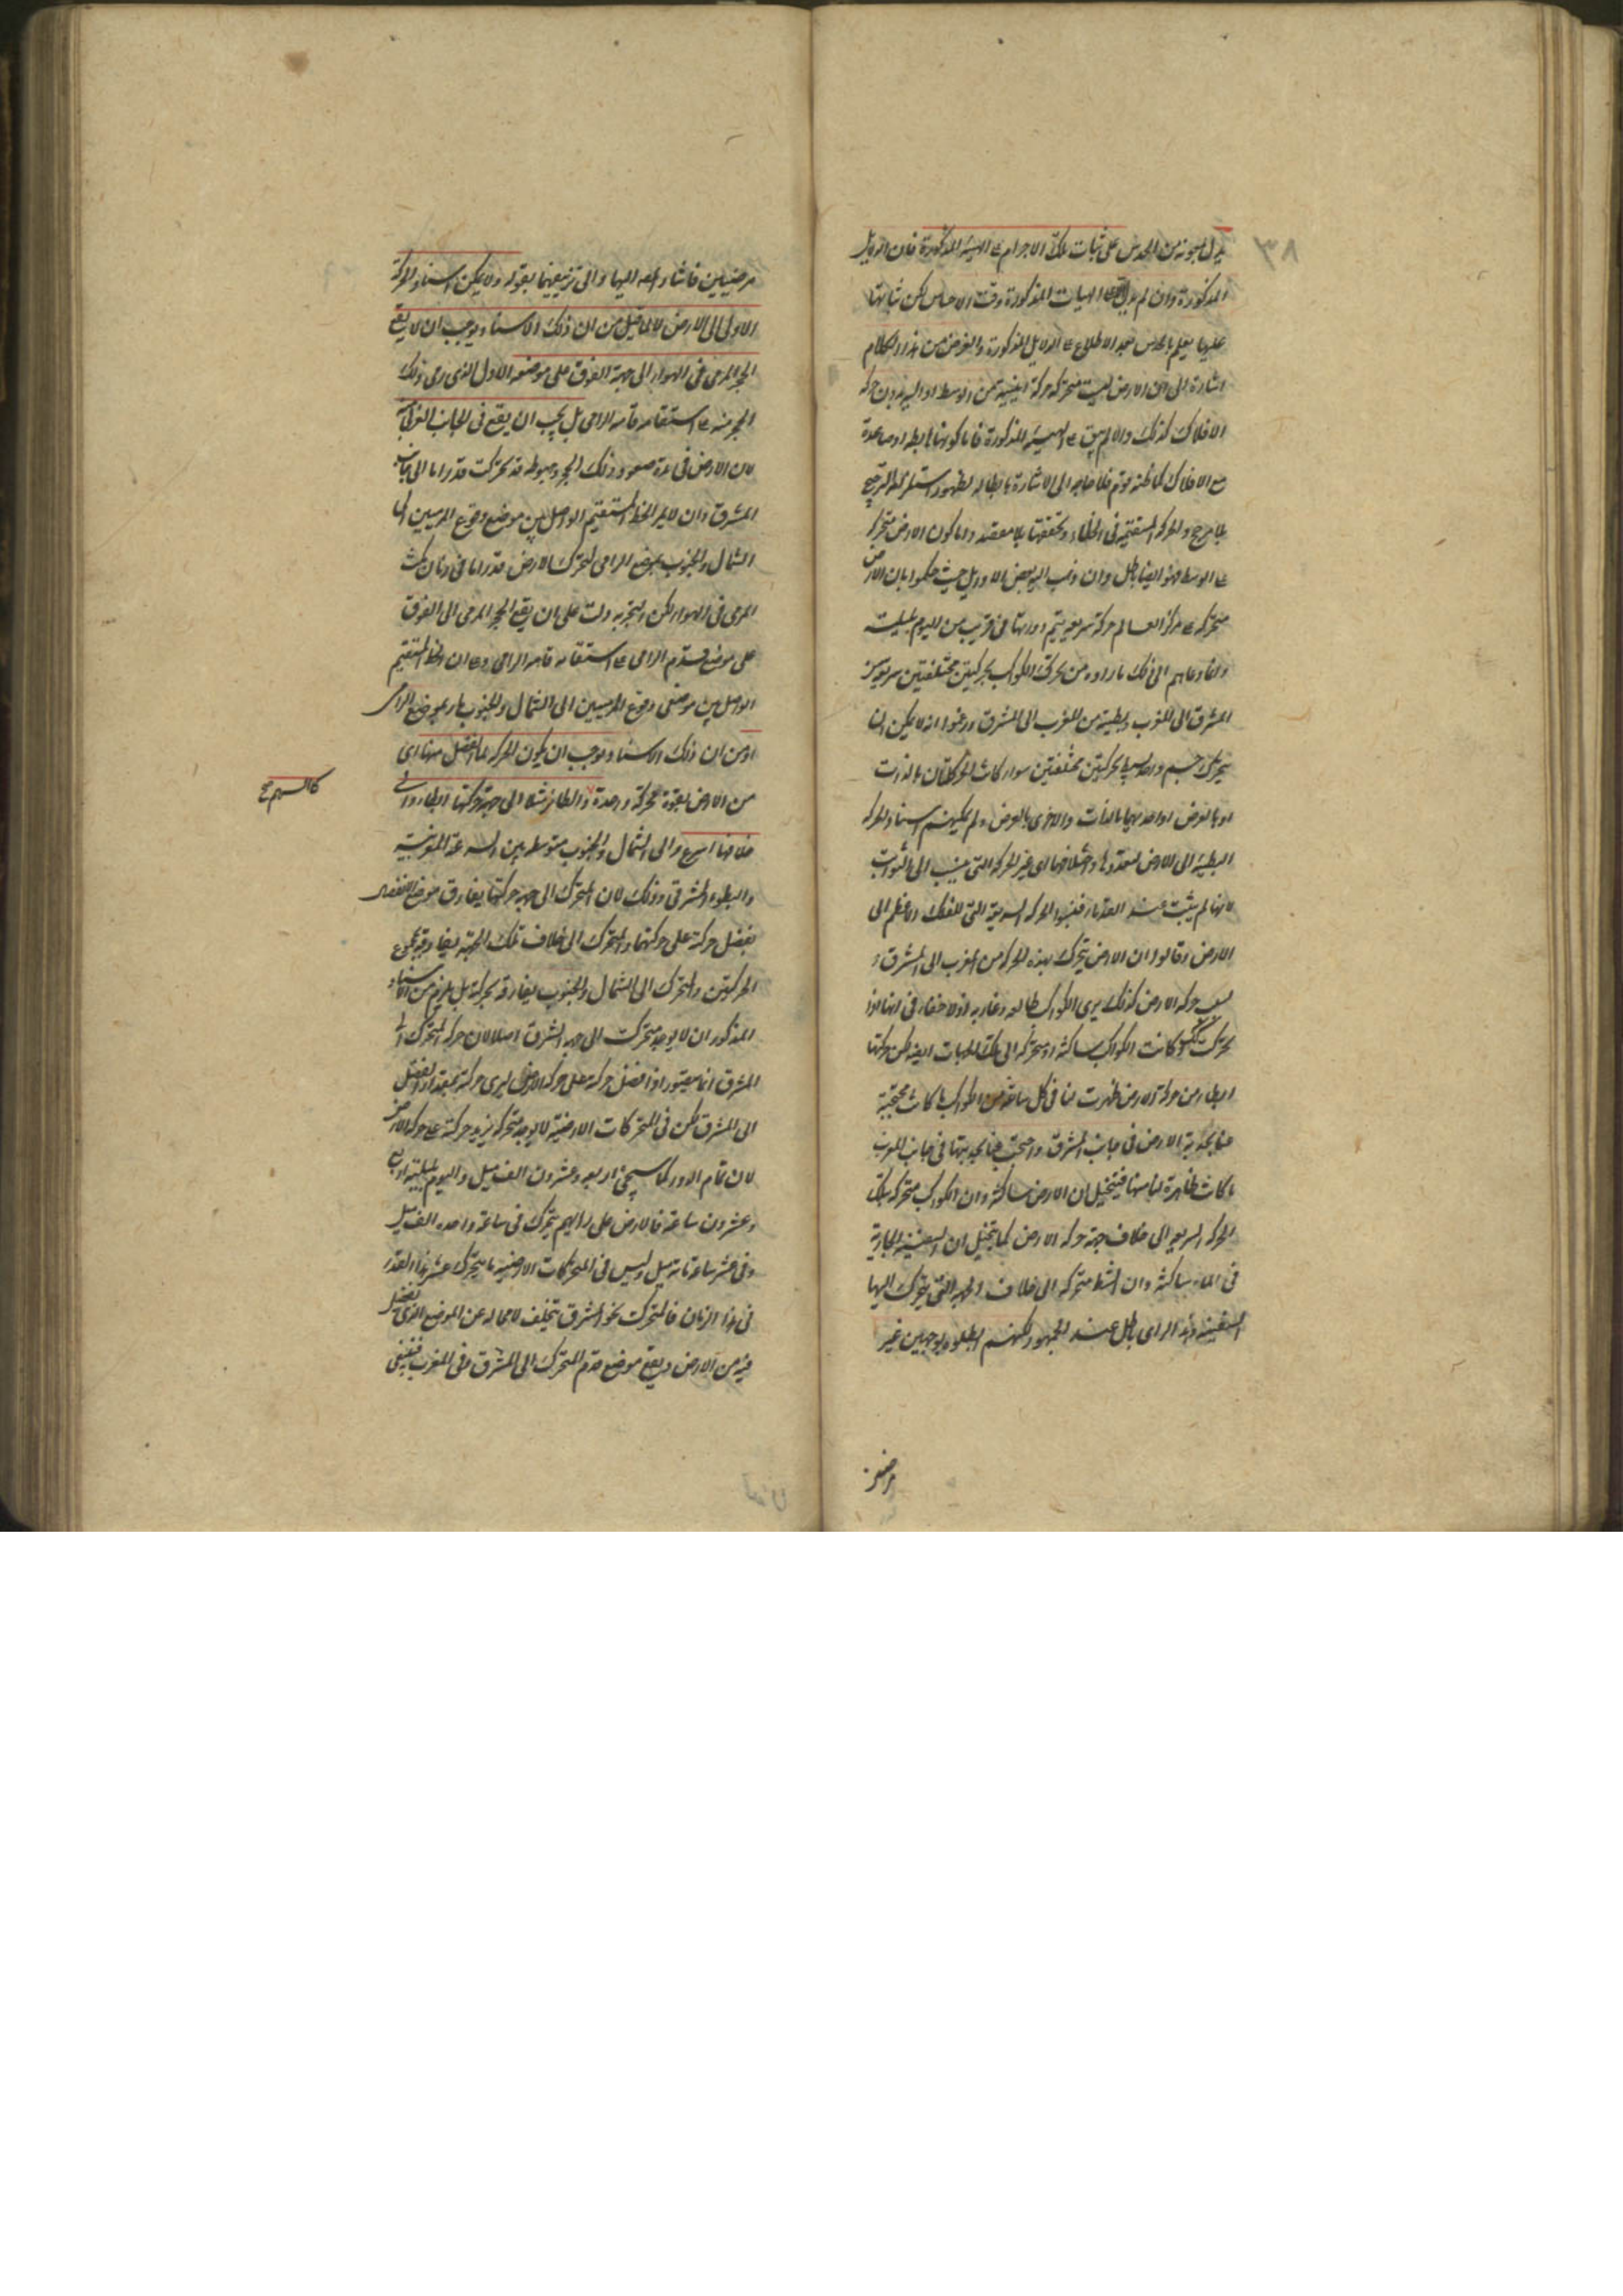 يدل بمعونة من الحدس على ثبات تلك الاجرام على الهيئة المذكورة فان الدلايل
المذكورة وان لم يدل على الهيات المذكورة وقت الاحساس لكن ثباتها
عليها يعلم بالحدس بعد الاطلاع على الدلايل المذكورة والغرض من هذا الكلام
اشارة الى ان الارض ليست متحركة حركة اينية من الوسط او اليه بدون حركة
الافلاك كذلك والا لم يبق على الهيئة المذكورة فاما كونها هابطة او صاعدة
مع الافلاك كما ظنه قوم فلا حاجة الى الاشارة بابطاله لظهور استلزامه الترجيح
بلا مرجح والحركة المستقيمة في الخلاء وتحققها بلا مقصد واما كون الارض متحركة
على الوسط فهو ايضا باطل وان ذهب اليه بعض الاوايل حيث حكموا بان الارض
متحركة على مركز العالم حركة سريعة يتم دورتها في قريب من اليوم بليلته
وانما دعاهم الى ذلك ما راوه من تحرك الكواكب بحركتين مختلفتين سريعة من
المشرق الى المغرب وبطيئة من المغرب الى المشرق وزعموا انه لا يمكن ان
يتحرك جسم واحد بحركتين مختلفتين سواء كانت الحركتان بالذات
او بالعرض او احديهما بالذات والاخرى بالعرض ولم يمكنهم اسناد الحركة
البطيئة الى الارض لتعددها واختلافها اى غير الحركة التى ينسب الى الثوابت
لانها لم يثبت عند القدماء فنسبوا الحركة السريعة التى للفلك الاعظم الى
الارض وقالوا ان الارض يتحرك بهذه الحركة من المغرب الى المشرق و
بسبب حركة الارض كذلك يرى الكواكب طالعة وغاربة اذ لا خفاء في انها اذا
تحركت كذلك وكانت الكواكب ساكنة او متحركة الى تلك الجهات ايضا لكن حركتها
ابطاء من حركة الارض ظهرت لنا في كل ساعة من الكواكب ما كانت محتجبة
عنا بحدبة الارض في جانب المشرق واحتجبت عنا بحدبتها في جانب المغرب
ما كانت ظاهرة لنا منها فيتخيل ان الارض ساكنة وان الكواكب متحركة بتلك
الحركة السريعة الى خلاف جهة حركة الارض كما يتخيل ان السفينة الجارية
في الماء ساكنة وان الشط متحركة الى خلاف الجهة التى يتحرك اليها
السفينة وهذا الراى باطل عند الجمهور لكنهم ابطلوه بوجهين غير
مرضيين
٨٣
مرضيين فاشار المص اليها والى تزييفهما بقوله ولا يمكن اسناد الحركة
الاولى الى الارض لا لما قيل من ان ذلك الاسناد يوجب ان لا يقع
الحجر المرمى في الهواء الى جهة الفوق على موضعه الاول الذى رمى ذلك
الحجر منه على استقامة قامة الرامى بل يجب ان يقع في الجانب الغربى
لان الارض في مدة صعود ذلك الحجر وهبوطه قد تحركت قدرا ما الى جانب
المشرق وان لا يمر الخط المستقيم الواصل بين موضع وقوع المرميين الى
الشمال والجنوب بموضع الرامى لتحرك الارض قدرا ما في زمان مكث
المرمى في الهواء لكن التجربة دلت على ان يقع الحجر المرمى الى الفوق
على موضع قدم الرامى على استقامة قامة الرامى وعلى ان الخط المستقيم
الواصل بين موضعى وقوع المرميين الى الشمال والجنوب مار بموضع الرامى
او من ان ذلك الاسناد يوجب ان يكون الحركة لما انفصل منها اى
من الارض بقوة محركة واحدة والطائر مثلا الى جهة حركتها ابطاء والى
كالسهم صح
خلافها اسرع والى الشمال والجنوب متوسطة بين السرعة المغربية
والبطوء المشرقى وذلك لان المتحرك الى جهة حركتها يفارق موضع الانفصال
بفضل حركته على حركتها والمتحرك الى خلاف تلك الجهة يفارقه بمجموع
الحركتين والمتحرك الى الشمال والجنوب يفارقه بحركة بل يلزم من الاسناد
المذكور ان لا يوجد متحرك الى جهة المشرق اصلا لان حركة المتحرك الى
المشرق انما يتصور اذا فضل حركته على حركة الارض ليرى حركة بمقدار الفضل
الى المشرق لكن في المتحركات الارضية لا يوجد متحرك يزيد حركته على حركة الارض
لان تمام الدور كما سيجئ اربعة وعشرون الف ميل واليوم بليلته اربع
وعشرون ساعة فالارض على رايهم يتحرك في ساعة واحدة الف ميل
وفي عشر ساعة مائة ميل وليس في المتحركات الارضية ما يتحرك عشر هذا القدر
في هذا الزمان فالمتحرك نحو المشرق يتخلف لا محالة عن الموضع الذى انفصل
فيه من الارض ويقع موضع قدم المتحرك الى المشرق في المغرب فينبغى